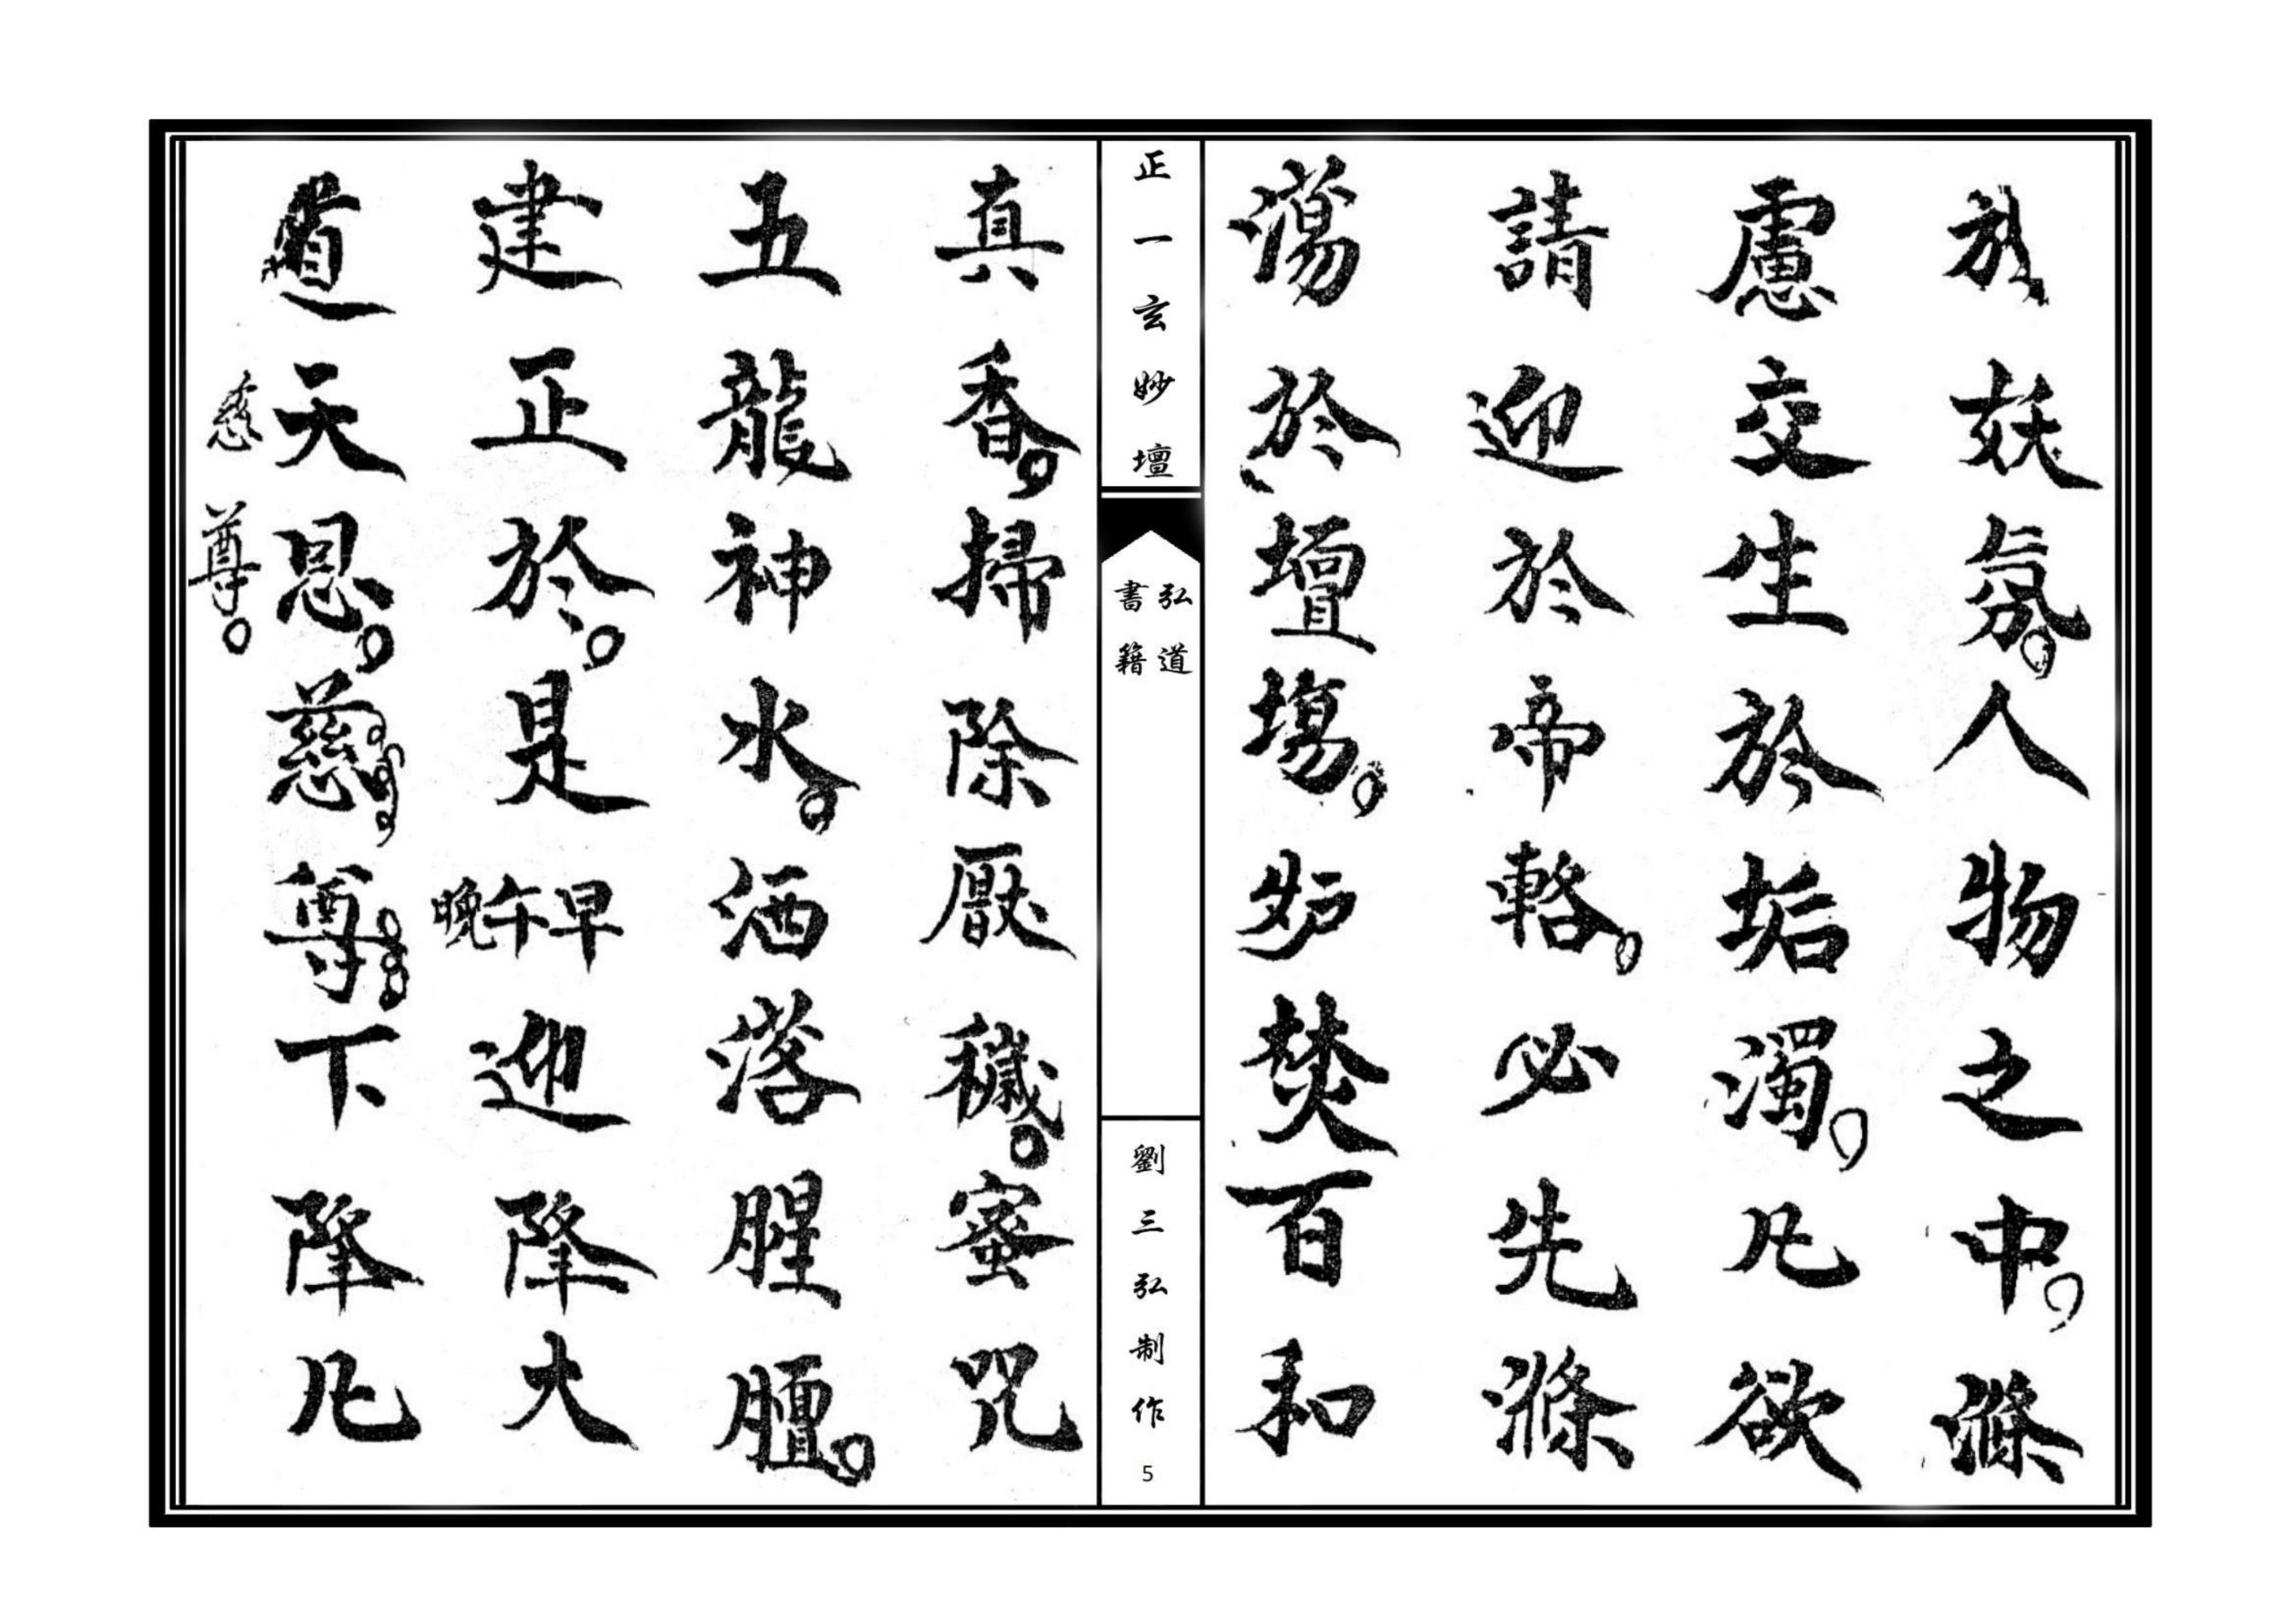 於妖氛。人物之中。滌
慮交生於垢濁。凡欲
請迎於帝輅。必先滌
蕩於壇場。妒焚百和
正一玄妙壇
弘道
書籍
劉三弘制作
5
真香。掃除厭穢。蜜咒
五龍神水。洒落腥膻。
建正於。是早午晚迎降大
道天恩。慈尊。下降凡
慈尊。